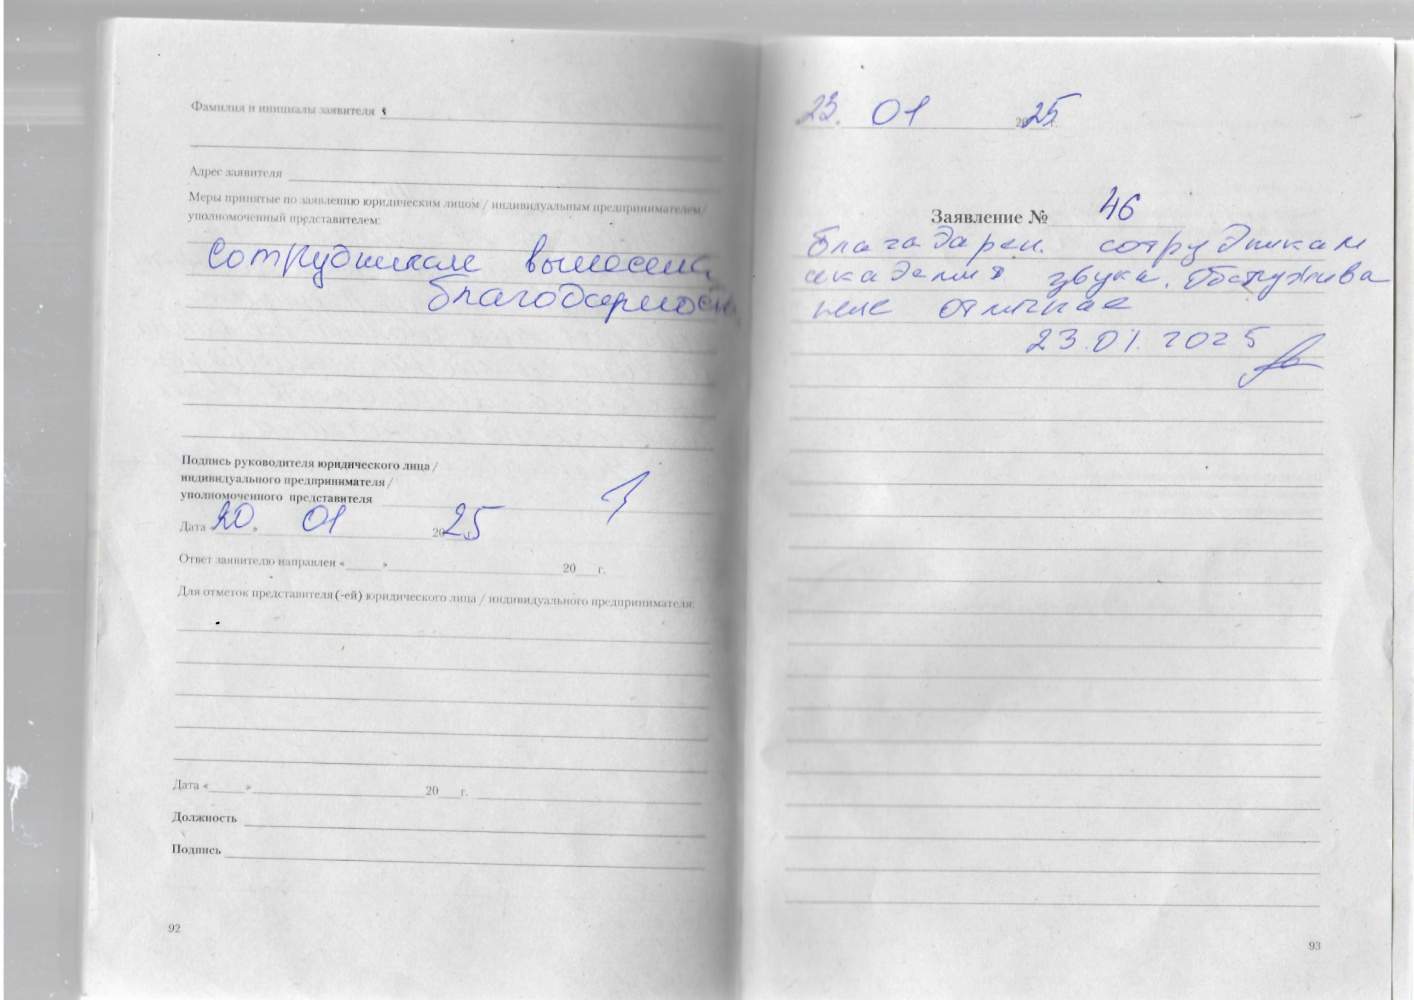 Фамилия и инициалы заявителя
Адрес заявителя
Меры принятые по заявлению юридическим лицом / индивидуальным предпринимателем/
уполномоченный представителем:
Сотрудникам вынесена
благодарность
Подпись руководителя юридического лица /
индивидуального предпринимателя /
уполномоченного представителя
Дата «20» 01 2025
Ответ заявителю направлен «____» ____ 20__г.
Для отметок представителя (-ей) юридического лица / индивидуального предпринимателя:
Дата «____» ____ 20__г.
Должность
Подпись
92
23. 01 2025г.
Заявление № 46
благадарен. сотрудникам
академия звука. Обслужива
ние отличнае
23.01.2025
93